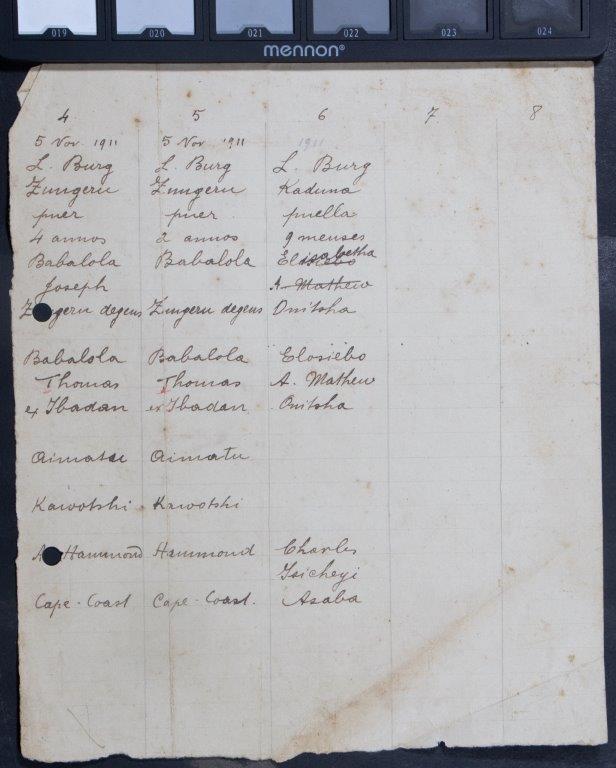 019 020 021 022 023 024
mennon®
4 5 6 7 8
5 Nov. 1911 5 Nov. 1911 1911
L. Burg L. Burg L. Burg
Zungeru Zungeru Kaduna
puer puer puella
4 annos 2 annos 9 menses
Babalola Babalola Elisabetha
Joseph A. Mathew
Zungeru degens Zungeru degens Onitsha
Babalola Babalola Elosiebo
Thomas Thomas A. Mathew
ex Ibadan ex Ibadan Onitsha
Aimatu Aimatu
Kawotshi Kawotshi
Hammond Hammond Charles
Isicheyi
Cape-Coast Cape-Coast. Asaba